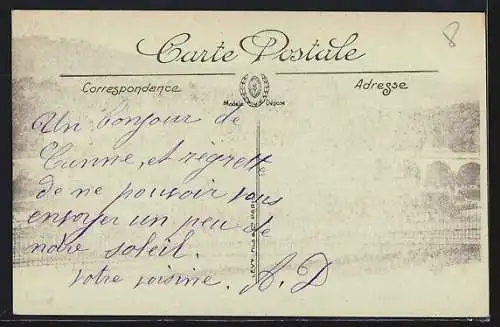 8
Carte Postale
Correspondance
Adresse
Modèle Déposé
Un bonjour de
Canne, et regrett
de ne pouvoir vous
envoyer un peu de
notre soleil.
votre voisine. A. D